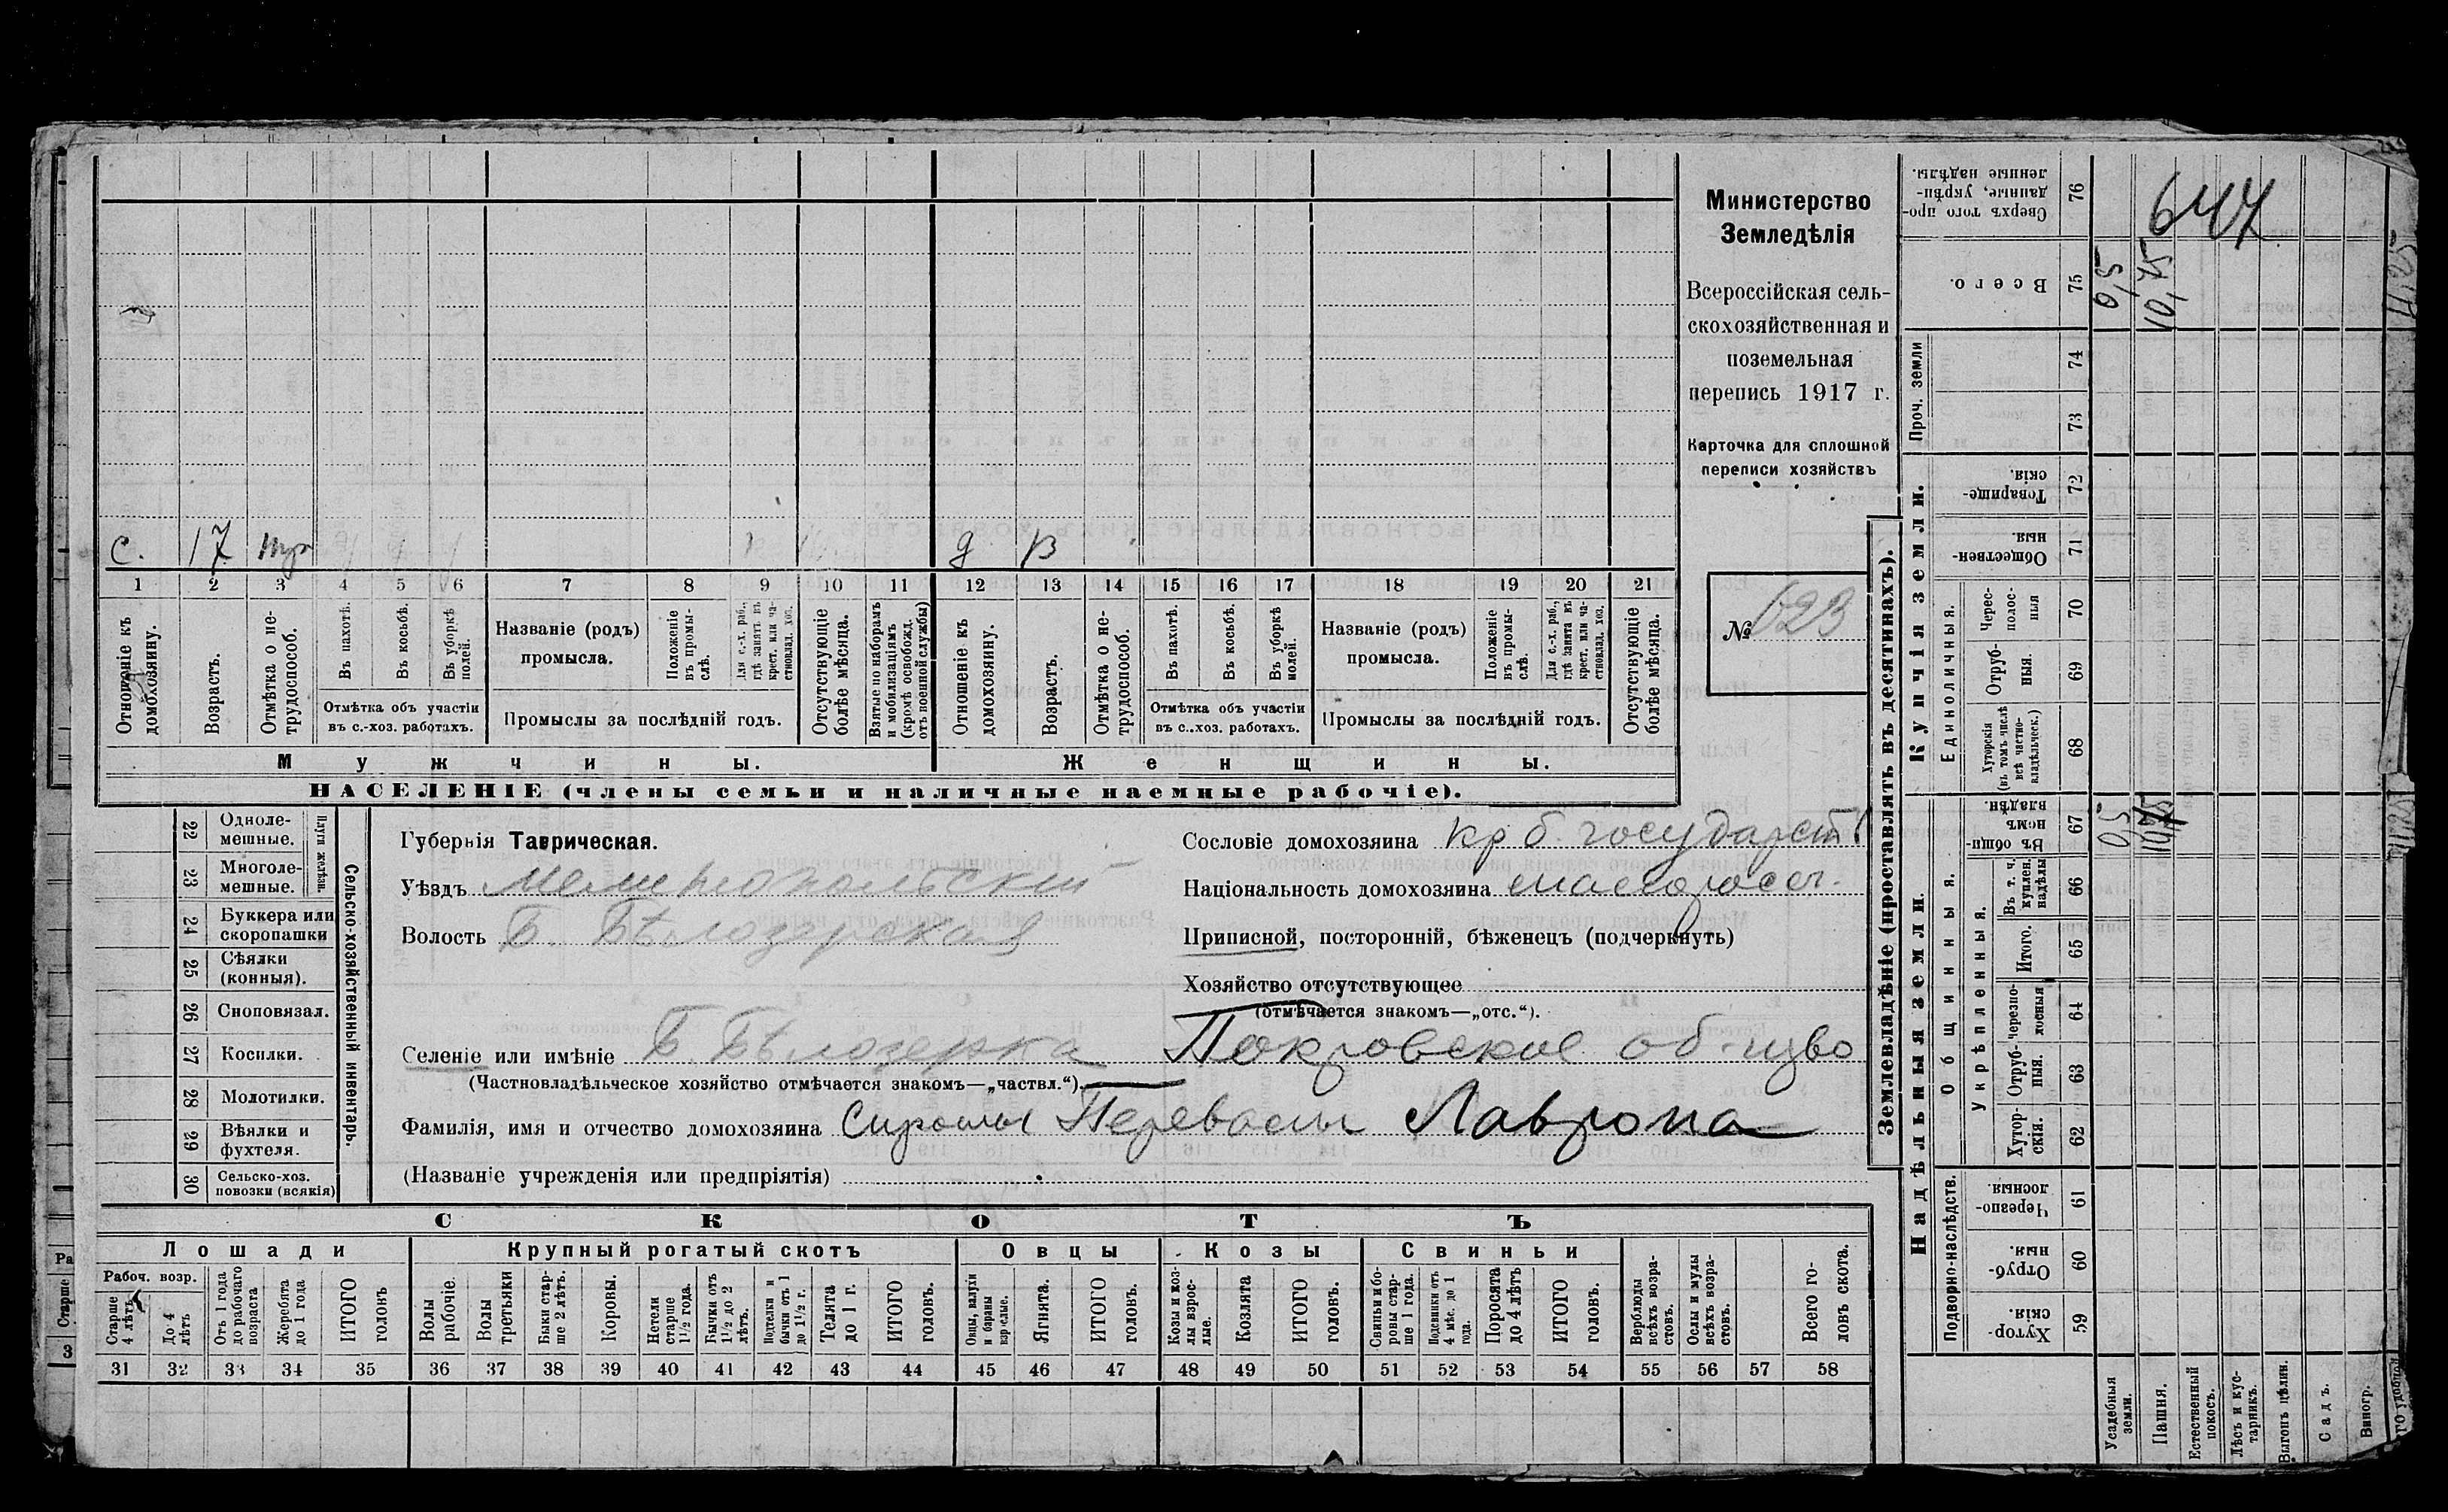 Министерство
Земледѣлія
Всероссійская сель-
скохозяйственная и
поземельная
перепись 1917 г.
Карточка для сплошной
переписи хозяйствъ
№ 623
с. 17 д 13
1 2 3 4 5 6 7 8 9 10 11 12 13 14 15 16 17 18 19 20 21
Отношеніе къ домохозяину.
Возрастъ.
Отмѣтка о не-трудоспособ.
Въ пахотѣ.
Въ косьбѣ.
Въ уборкѣ полей.
Отмѣтка объ участіи
въ с.-хоз. работахъ.
Названіе (родъ)
промысла.
Положеніе въ промы-слѣ.
Для с.-х. раб., гдѣ занятъ въ крест. или ча-стновлад. хоз.
Промыслы за послѣдній годъ.
Отсутствующіе болѣе мѣсяца.
Взятые по наборамъ и мобилизаціямъ (кромѣ освобожд. отъ военной службы)
Отношеніе къ домохозяину.
Возрастъ.
Отмѣтка о не-трудоспособ.
Въ пахотѣ.
Въ косьбѣ.
Въ уборкѣ полей.
Отмѣтка объ участіи
въ с.-хоз. работахъ.
Названіе (родъ)
промысла.
Положеніе въ промы-слѣ.
Для с.-х. раб., гдѣ занята въ крест. или ча-стновлад. хоз.
Промыслы за послѣдній годъ.
Отсутствующіе болѣе мѣсяца.
Мужчины. Женщины.
НАСЕЛЕНІЕ (члены семьи и наличные наемные рабочіе).
Сельско-хозяйственный инвентарь.
Плуги желѣзн.
22 Одноле-мешные.
23 Многоле-мешные.
24 Буккера или скоропашки
25 Сѣялки (конныя).
26 Сноповязал.
27 Косилки.
28 Молотилки.
29 Вѣялки и фухтеля.
30 Сельско-хоз. повозки (всякія)
Губернія Таврическая.
Уѣздъ Мелитопольскій
Волость Б. Бѣлозерская
Селеніе или имѣніе Б Бѣлозерка Покровское об-цво
(Частновладѣльческое хозяйство отмѣчается знакомъ—„частвл.“).
Фамилія, имя и отчество домохозяина Сироты Лаврона
(Названіе учрежденія или предпріятія)
Сословіе домохозяина кр б. государств
Національность домохозяина малоросс.
Приписной, посторонній, бѣженецъ (подчеркнуть)
Хозяйство отсутствующее
(отмѣчается знакомъ—„отс.“).
СКОТЪ
Лошади Крупный рогатый скотъ Овцы Козы Свиньи
Рабоч. возр.
Старше 4 лѣтъ
До 4 лѣтъ
Отъ 1 года до рабочаго возраста
Жеребята до 1 года
ИТОГО головъ
Волы рабочіе
Волы третьяки
Быки стар-ше 2 лѣтъ.
Коровы.
Нетели старше 1½ года.
Бычки отъ 1½ до 2 лѣтъ.
Подтелки и бычки отъ 1 до 1½ г.
Телята до 1 г.
ИТОГО головъ.
Овцы, валухи и бараны взрослые.
Ягнята.
ИТОГО головъ.
Козы и коз-лы взрос-лые.
Козлята
ИТОГО головъ.
Свиньи и бо-ровы стар-ше 1 года.
Подсвинки отъ 4 мѣс. до 1 года.
Поросята до 4 лѣтъ
ИТОГО головъ.
Верблюды всѣхъ возра-стовъ.
Ослы и мулы всѣхъ возра-стовъ.
Всего го-ловъ скота.
31 32 33 34 35 36 37 38 39 40 41 42 43 44 45 46 47 48 49 50 51 52 53 54 55 56 57 58
Землевладѣніе (проставлять въ десятинахъ).
647
Сверхъ того про-данные, укрѣп-ленные надѣлы. 76
Всего. 75 0,5 10,75
Проч. земли 74 73
Купчія земли.
Товарище-скія 72
Обществен-ныя 71
Единоличныя.
Черес-полос-ныя 70
Отруб-ныя. 69
Хуторскія (въ томъ числѣ всѣ частно-владѣльческ.) 68
Надѣльныя земли.
Общинныя.
Въ общин-номъ владѣн. 67 0,5 10,75
Укрѣпленныя.
Въ т. ч. куплен. надѣлы 66
Итого. 65
Черезпо-лосныя 64
Отруб-ныя. 63
Хутор-скія. 62
Подворно-наслѣдств.
Черезпо-лосныя. 61
Отруб-ныя. 60
Хутор-скія. 59
Усадебныя земли.
Пашня.
Естественный покосъ.
Лѣсъ и кус-тарникъ.
Выгонъ цѣлин.
Садъ.
Виногр.